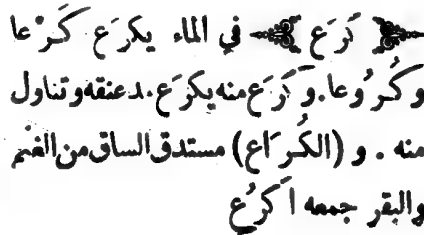 كَرَع في الماء يكرَع كَرْعا
وكُرُوعا. وكَرَع منه يكرَع.مد عنقه وتناول
منه . و (الكُرَاع) مستدق الساق من الغنم
والبقر جمعه اكرُع